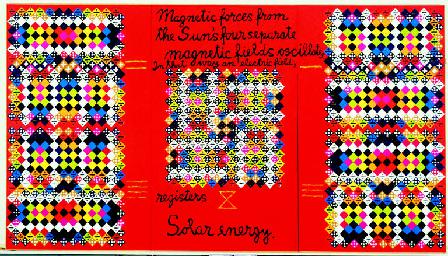 Magnetic forces from
the Sun's four separate
magnetic fields oscillate
In an electric field,
registers
Solar energy